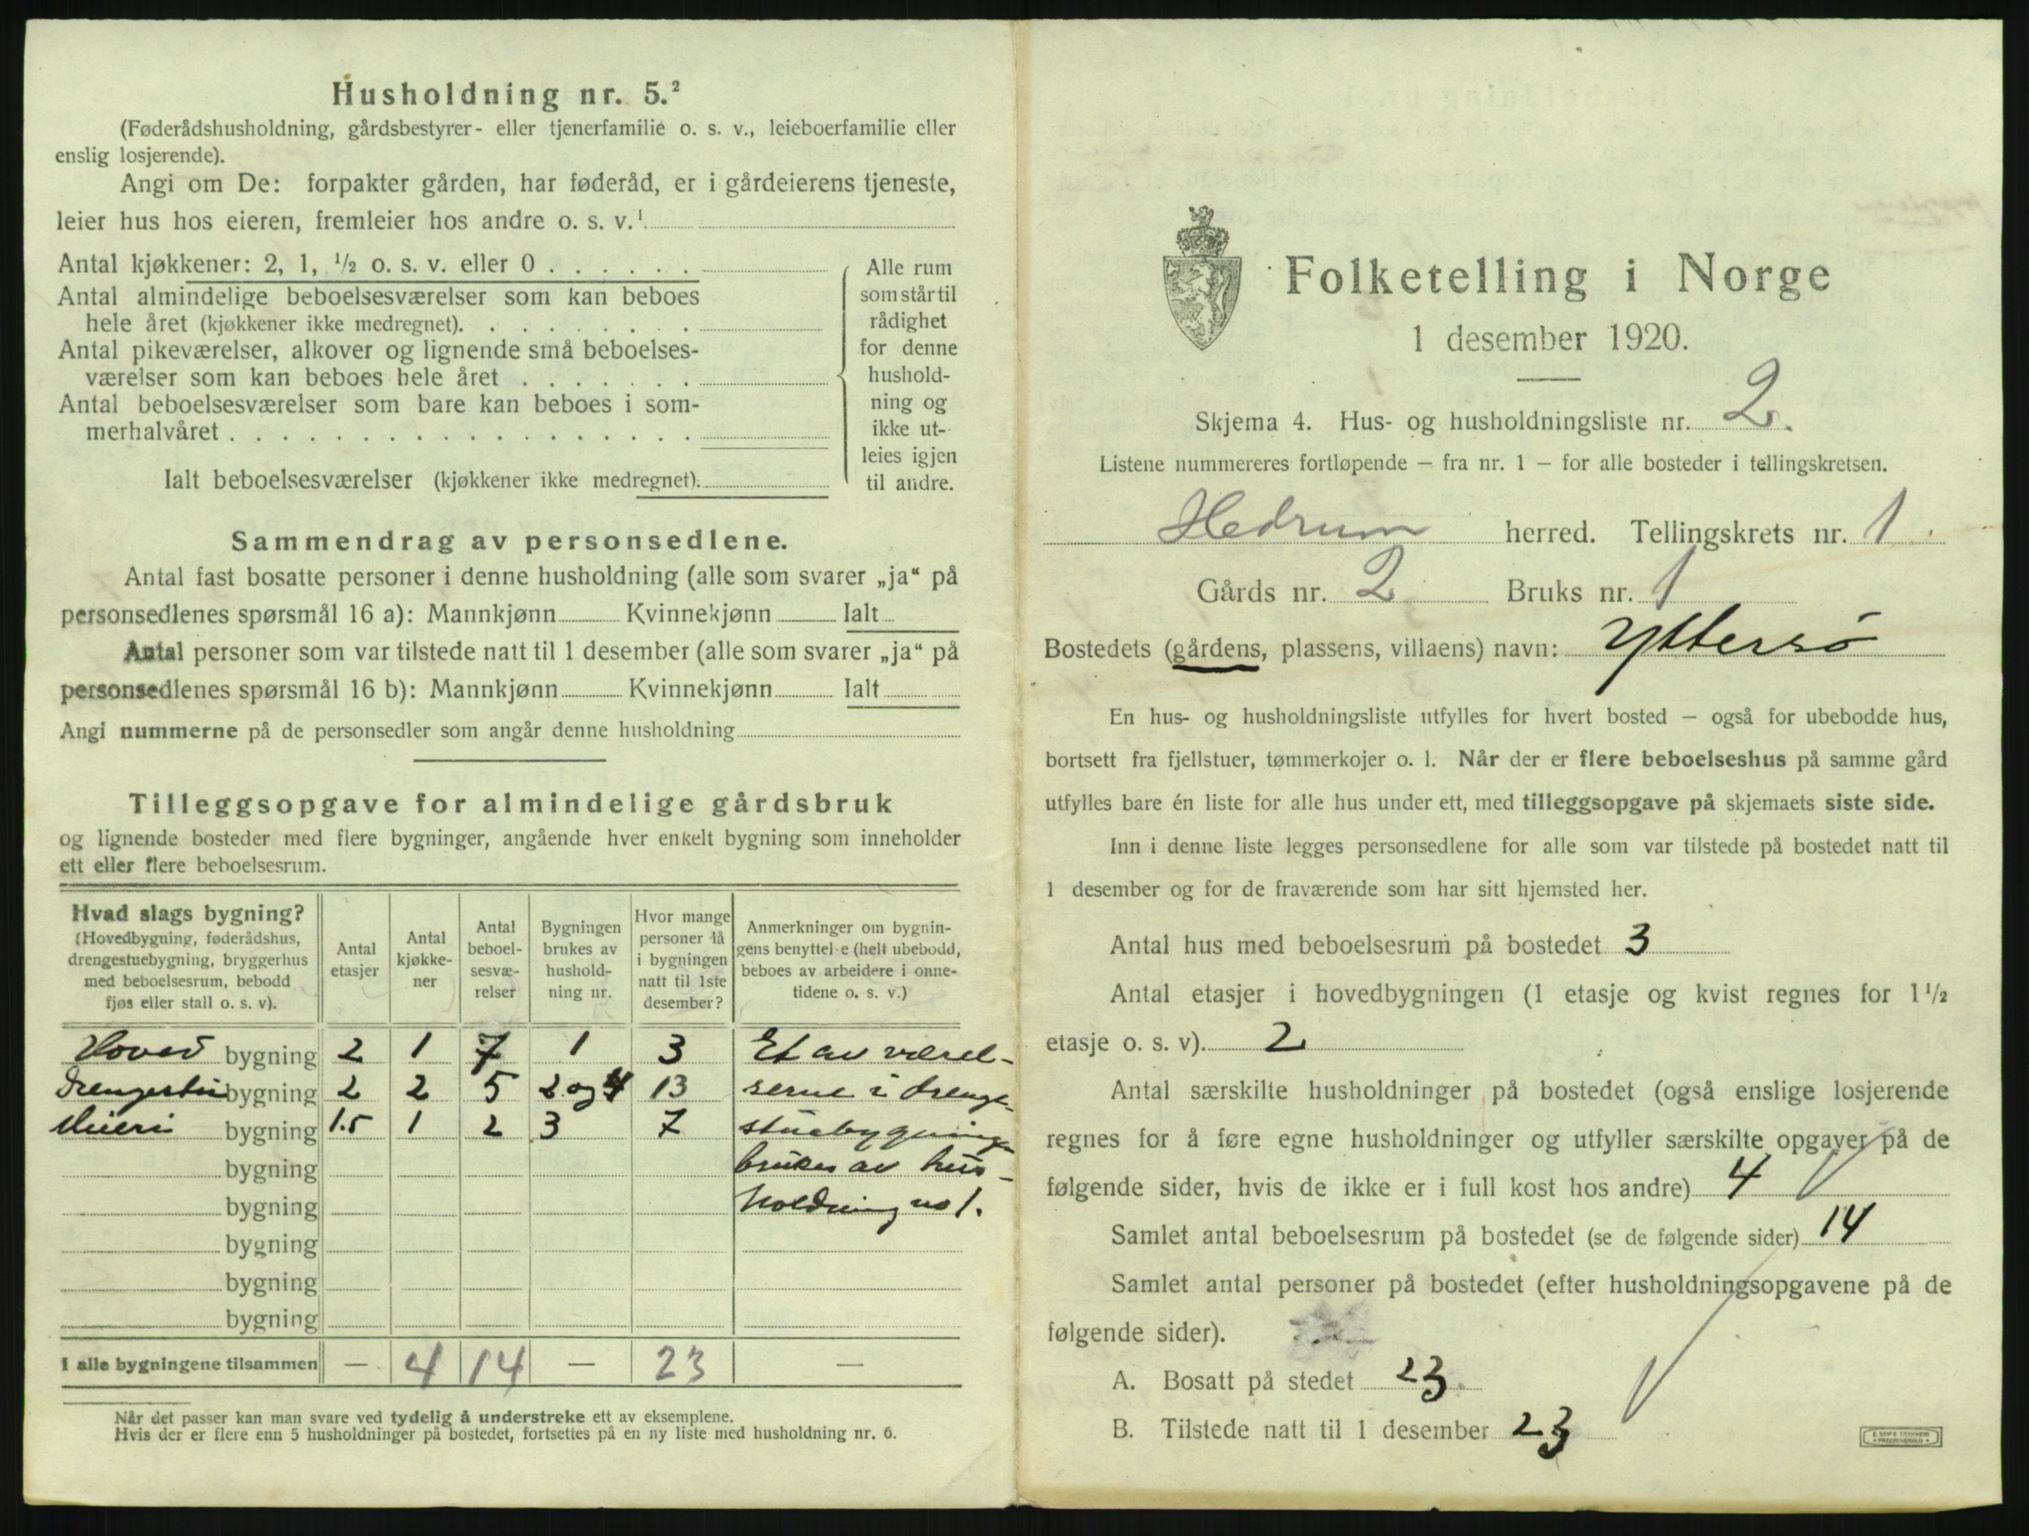 Husholdning nr. 5.²
(Føderådshusholdning, gårdsbestyrer- eller tjenerfamilie o. s. v., leieboerfamilie eller
enslig losjerende).
Angi om De: forpakter gården, har føderåd, er i gårdeierens tjeneste,
leier hus hos eieren, fremleier hos andre o. s. v.¹
Antal kjøkkener: 2, 1, ½ o. s. v. eller 0 . . . . . .
Antal almindelige beboelsesværelser som kan beboes
hele året (kjøkkener ikke medregnet). . . . . . . . .
Antal pikeværelser, alkover og lignende små beboelses-
værelser som kan beboes hele året . . . . . . .
Antal beboelsesværelser som bare kan beboes i som-
merhalvåret . . . . . . . . . . . . . . . . . .
Ialt beboelsesværelser (kjøkkener ikke medregnet).
Alle rum
som står til
rådighet
for denne
hushold-
ning og
ikke ut-
leies igjen
til andre.
Sammendrag av personsedlene.
Antal fast bosatte personer i denne husholdning (alle som svarer „ja“ på
personsedlenes spørsmål 16 a): Mannkjønn Kvinnekjønn Ialt
Antal personer som var tilstede natt til 1 desember (alle som svarer „ja“ på
personsedlenes spørsmål 16 b): Mannkjønn Kvinnekjønn Ialt
Angi nummerne på de personsedler som angår denne husholdning
Tilleggsopgave for almindelige gårdsbruk
og lignende bosteder med flere bygninger, angående hver enkelt bygning som inneholder
ett eller flere beboelsesrum.
Hvad slags bygning?
(Hovedbygning, føderådshus,
drengestuebygning, bryggerhus
med beboelsesrum, bebodd
fjøs eller stall o. s. v).
Antal
etasjer
Antal
kjøkke-
ner
Antal
beboel-
sesvæ-
relser
Bygningen
brukes av
hushold-
ning nr.
Hvor mange
personer lå
i bygningen
natt til 1ste
desember?
Anmerkninger om bygnin-
gens benyttel e (helt ubebodd,
beboes av arbeidere i onne-
tidene o. s. v.)
Hoved bygning 2 1 7 1 3 Et av værel-
Drengestu bygning 2 2 5 2 og 4 13 serne i drenge-
Mieri bygning 1.5 1 2 3 7 stuebygningen
bygning brukes av hus-
bygning holdning no 1.
bygning
bygning
bygning
I alle bygningene tilsammen — 4 14 — 23 —
Når det passer kan man svare ved tydelig å understreke ett av eksemplene.
Hvis der er flere enn 5 husholdninger på bostedet, fortsettes på en ny liste med husholdning nr. 6.
Folketelling i Norge
1 desember 1920.
Skjema 4. Hus- og husholdningsliste nr. 2.
Listene nummereres fortløpende – fra nr. 1 – for alle bosteder i tellingskretsen.
Hedrum herred. Tellingskrets nr. 1.
Gårds nr. 2 Bruks nr. 1
Bostedets (gårdens, plassens, villaens) navn: Yttersø
En hus- og husholdningsliste utfylles for hvert bosted – også for ubebodde hus,
bortsett fra fjellstuer, tømmerkojer o. l. Når der er flere beboelseshus på samme gård
utfylles bare én liste for alle hus under ett, med tilleggsopgave på skjemaets siste side.
Inn i denne liste legges personsedlene for alle som var tilstede på bostedet natt til
1 desember og for de fraværende som har sitt hjemsted her.
Antal hus med beboelsesrum på bostedet 3
Antal etasjer i hovedbygningen (1 etasje og kvist regnes for 1½
etasje o. s. v). 2
Antal særskilte husholdninger på bostedet (også enslige losjerende
regnes for å føre egne husholdninger og utfyller særskilte opgaver på de
følgende sider, hvis de ikke er i full kost hos andre) 4
Samlet antal beboelsesrum på bostedet (se de følgende sider) 14
Samlet antal personer på bostedet (efter husholdningsopgavene på de
følgende sider).
A. Bosatt på stedet 23
B. Tilstede natt til 1 desember 23